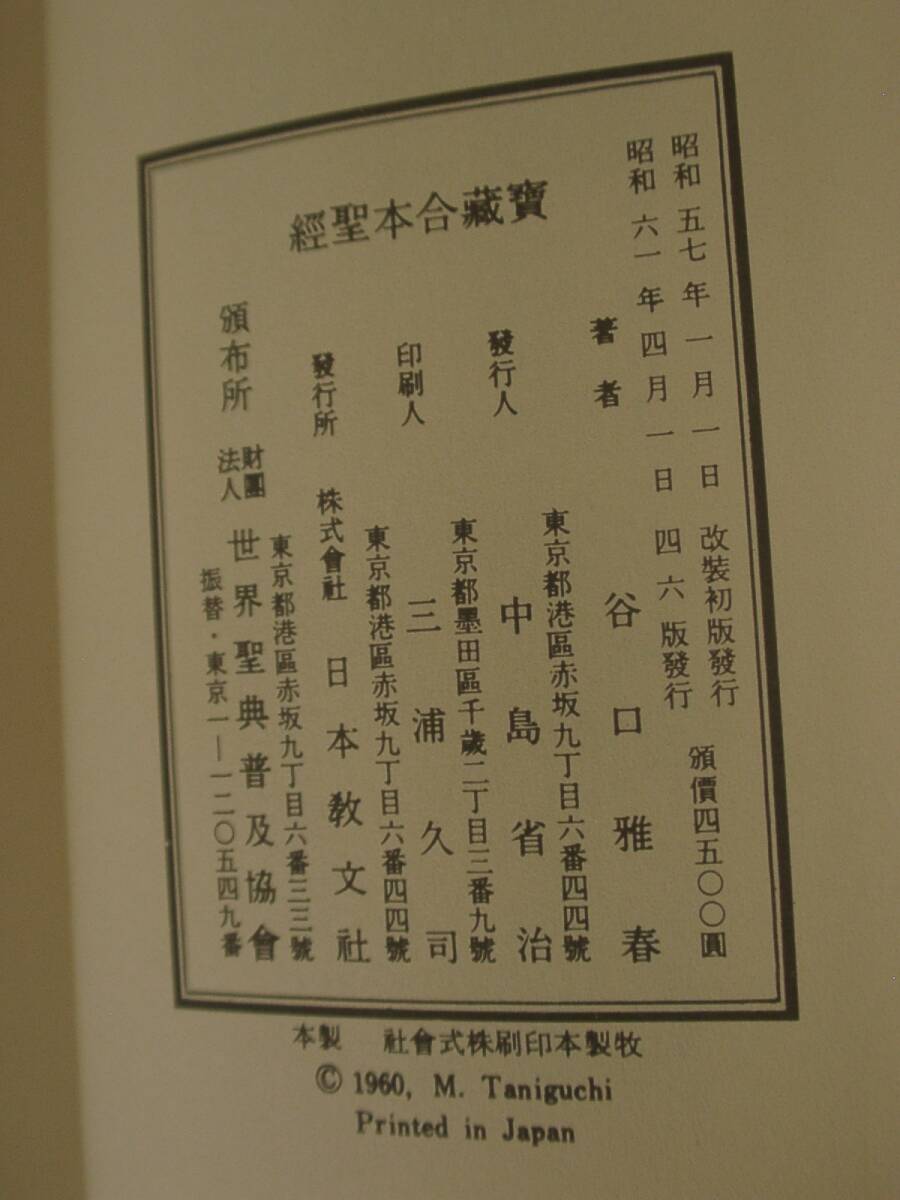 寶藏合本聖經
昭和五七年一月一日 改裝初版發行
昭和六一年四月一日 四六版發行
頒價四五〇〇圓
著者 谷口雅春
東京都港區赤坂九丁目六番四四號
發行人 中島省治
東京都墨田區千歲二丁目三番九號
印刷人 三浦久司
東京都港區赤坂九丁目六番四四號
發行所 株式會社 日本教文社
東京都港區赤坂九丁目六番三三號
頒布所 財團法人 世界聖典普及協會
振替・東京一―一二〇五四九番
牧製本印刷株式會社 製本
© 1960, M. Taniguchi
Printed in Japan